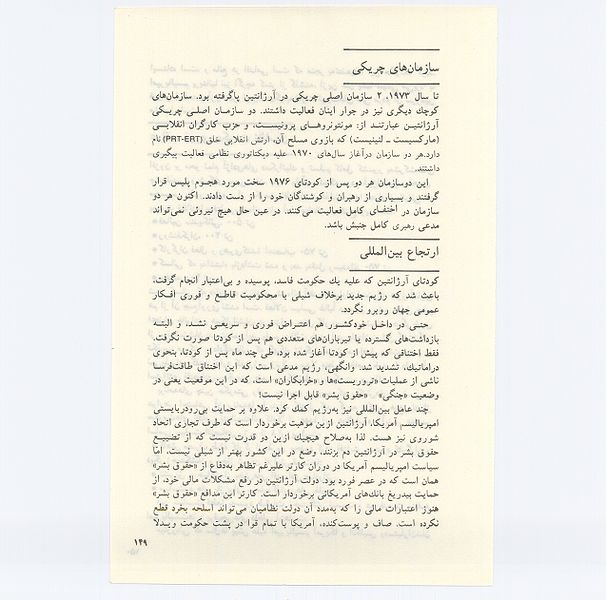 سازمان‌های چریکی
تا سال ۱۹۷۳، ۲ سازمان اصلی چریکی در آرژانتین پاگرفته بود. سازمان‌های
کوچك دیگری نیز در جوار اینان فعالیت داشتند. دو سازمان اصلی چریکی
آرژانتین عبارتند از: مونتونروهای پرونیست، و حزب کارگران انقلابی
(مارکسیست ـ لنینیست) که بازوی مسلح آن، ارتش انقلابی خلق (PRT-ERT) نام
دارد. هر دو سازمان درآغاز سال‌های ۱۹۷۰ علیه دیکتاتوری نظامی فعالیت پیگیری
داشتند.
این دوسازمان هر دو پس از کودتای ۱۹۷۶ سخت مورد هجوم پلیس قرار
گرفتند و بسیاری از رهبران و کوشندگان خود را از دست دادند. اکنون هر دو
سازمان در اختفای کامل فعالیت می‌کنند. در عین حال هیچ نیروئی نمی‌تواند
مدعی رهبری کامل جنبش باشد.
ارتجاع بین‌المللی
کودتای آرژانتین که علیه یك حکومت فاسد، پوسیده و بی‌اعتبار انجام گرفت،
باعث شد که رژیم جدید برخلاف شیلی با محکومیت قاطع و فوری افکار
عمومی جهان روبرو نگردد.
حتی در داخل خودکشور هم اعتراض فوری و سریعی نشد، و البته
بازداشت‌های گسترده یا تیرباران‌های متعددی هم پس از کودتا صورت نگرفت.
فقط اختناقی که پیش از کودتا آغاز شده بود، طی چند ماه پس از کودتا، بنحوی
دراماتیك، تشدید شد. وانگهی، رژیم مدعی است که این اختناق طاقت‌فرسا
ناشی از عملیات «تروریست»ها و «خرابکاران» است، که در این موقعیت یعنی در
وضعیت «جنگی» «حقوق بشر» قابل اجرا نیست!
چند عامل بین‌المللی نیز به‌رژیم کمك کرد. علاوه بر حمایت بی‌رودربایستی
امپریالیسم آمریکا، آرژانتین ازین موهبت برخوردار است که طرف تجاری اتحاد
شوروی نیز هست. لذا به‌صلاح هیچیك ازین دو قدرت نیست که از تضییع
حقوق بشر در آرژانتین دم بزنند، وضع در این کشور بهتر از شیلی نیست، اما
سیاست امپریالیسم آمریکا در دوران کارتر علیرغم تظاهر به‌دفاع از «حقوق بشر»
همان است که در عصر فورد بود. دولت آرژانتین در رفع مشکلات مالی خود، از
حمایت بیدریغ بانك‌های آمریکائی برخوردار است. کارتر این مدافع «حقوق بشر»
هنوز اعتبارات مالی را که به‌مدد آن دولت نظامیان می‌تواند اسلحه بخرد قطع
نکرده است. صاف و پوست‌کنده، آمریکا با تمام قوا در پشت حکومت ویدلا
۱۴۹